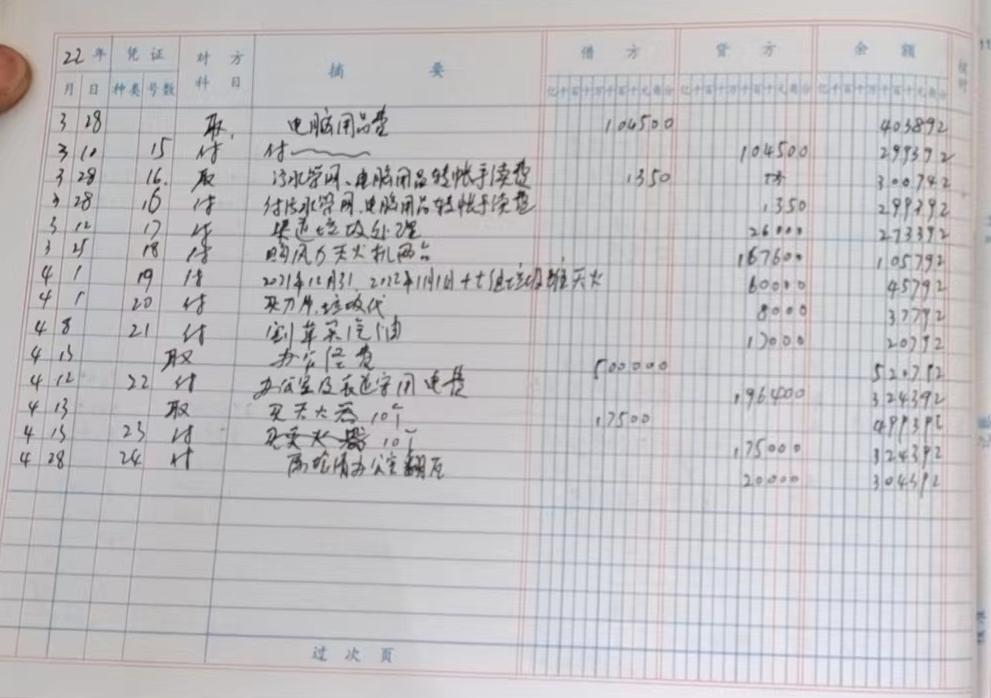 22年 凭证 对方科目 摘要 借方 贷方 余额 核对
月 日 种类 号数 亿千百十万千百十元角分 亿千百十万千百十元角分 亿千百十万千百十元角分
3 28 取 电脑用品费 104500 403892
3 10 15 付 付 104500 299392
3 28 16 取 污水管网、电脑用品转帐手续费 1350 300742
3 28 16 付 付污水管网、电脑用品转帐手续费 1350 299392
3 12 17 付 渠道垃圾处理 26000 273392
3 25 18 付 购风力灭火机两台 167600 105792
4 1 19 付 2021年12月31、2022年1月1日 垃圾 灭火 60000 45792
4 1 20 付 买刀片、垃圾代 8000 37792
4 8 21 付 割草买汽油 17000 20792
4 13 取 办公经费 500000 520792
4 12 22 付 办公室及 用电费 196400 324392
4 13 取 买灭火器10个 17500 499392
4 13 23 付 买灭火器10个 175000 324392
4 28 24 付 办公室翻瓦 20000 304392
过次页